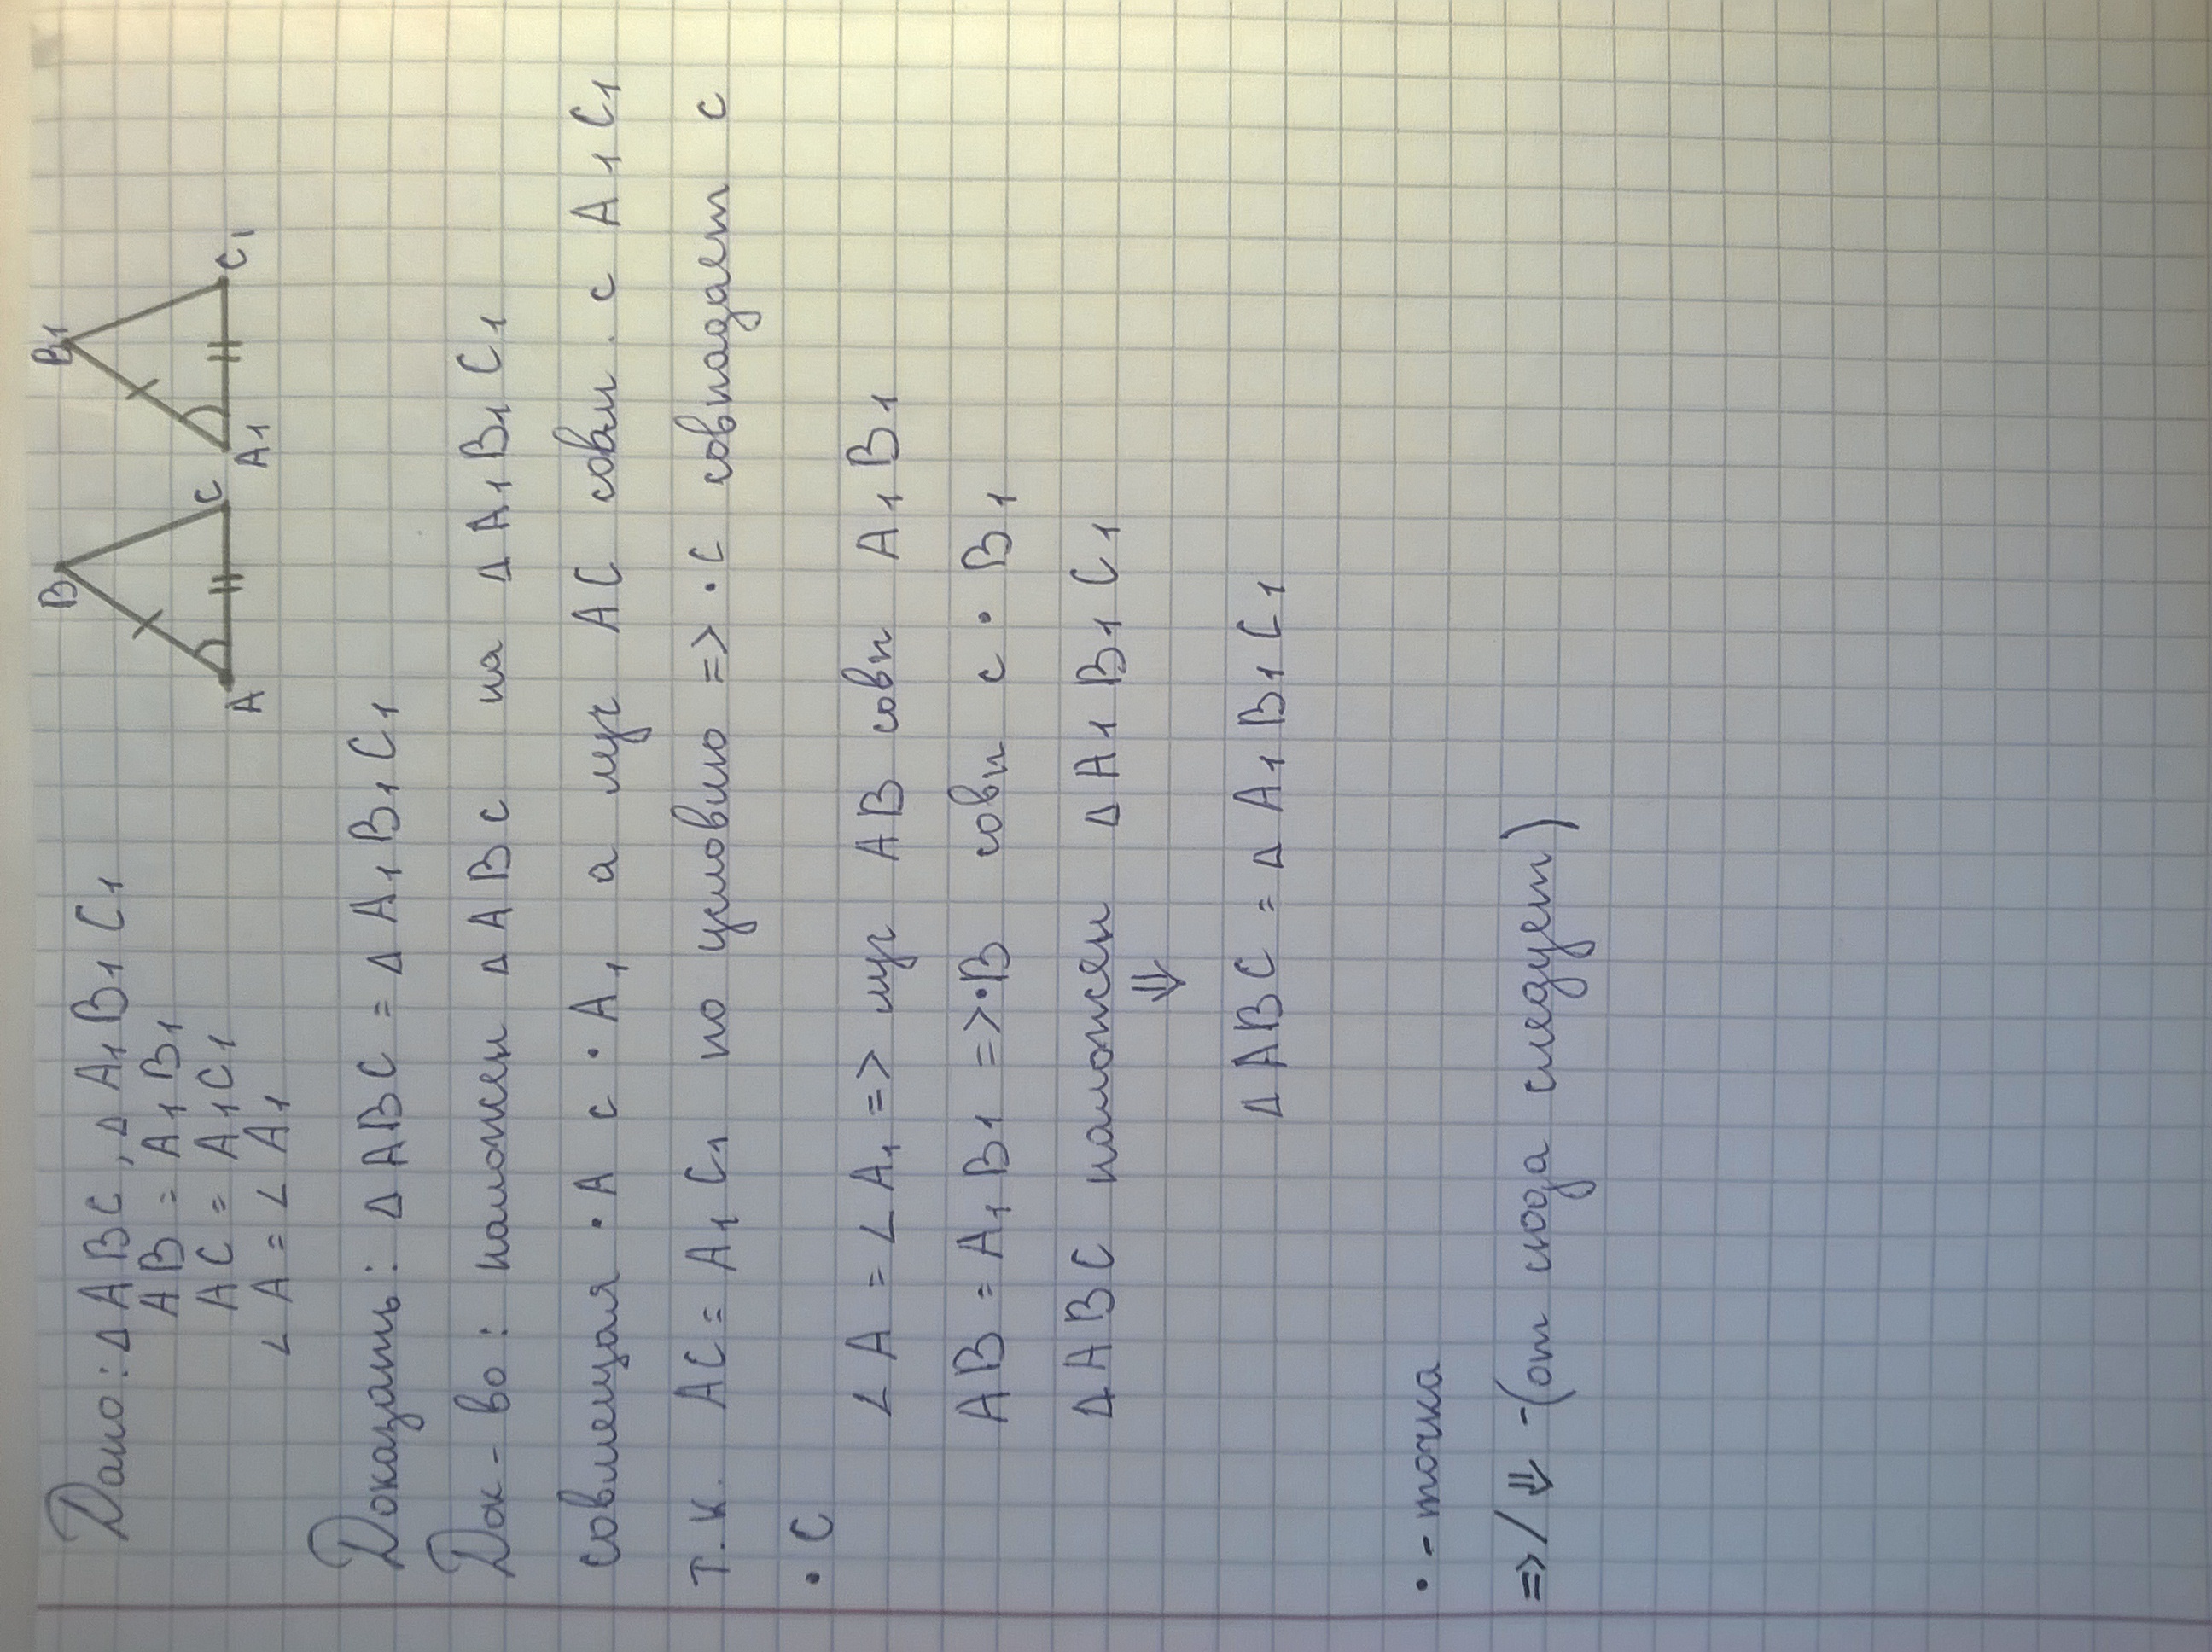 Дано: Δ ABC, Δ A1B1C1
AB = A1B1
AC = A1C1
∠A = ∠A1
B
A
C
B1
A1
C1
Доказать: Δ ABC = Δ A1B1C1
Док-во: наложен Δ ABC на Δ A1B1C1
совмещая •A с •A1 а луч AC совм. с A1C1
т.к. AC = A1C1 по условию => •C совпадает с
•C
∠A = ∠A1 => луч AB совп A1B1
AB = A1B1 => •B совп с •B1
Δ ABC наложен Δ A1B1C1
⇓
Δ ABC = Δ A1B1C1
• - точка
=>/⇓ - (от сюда следует)